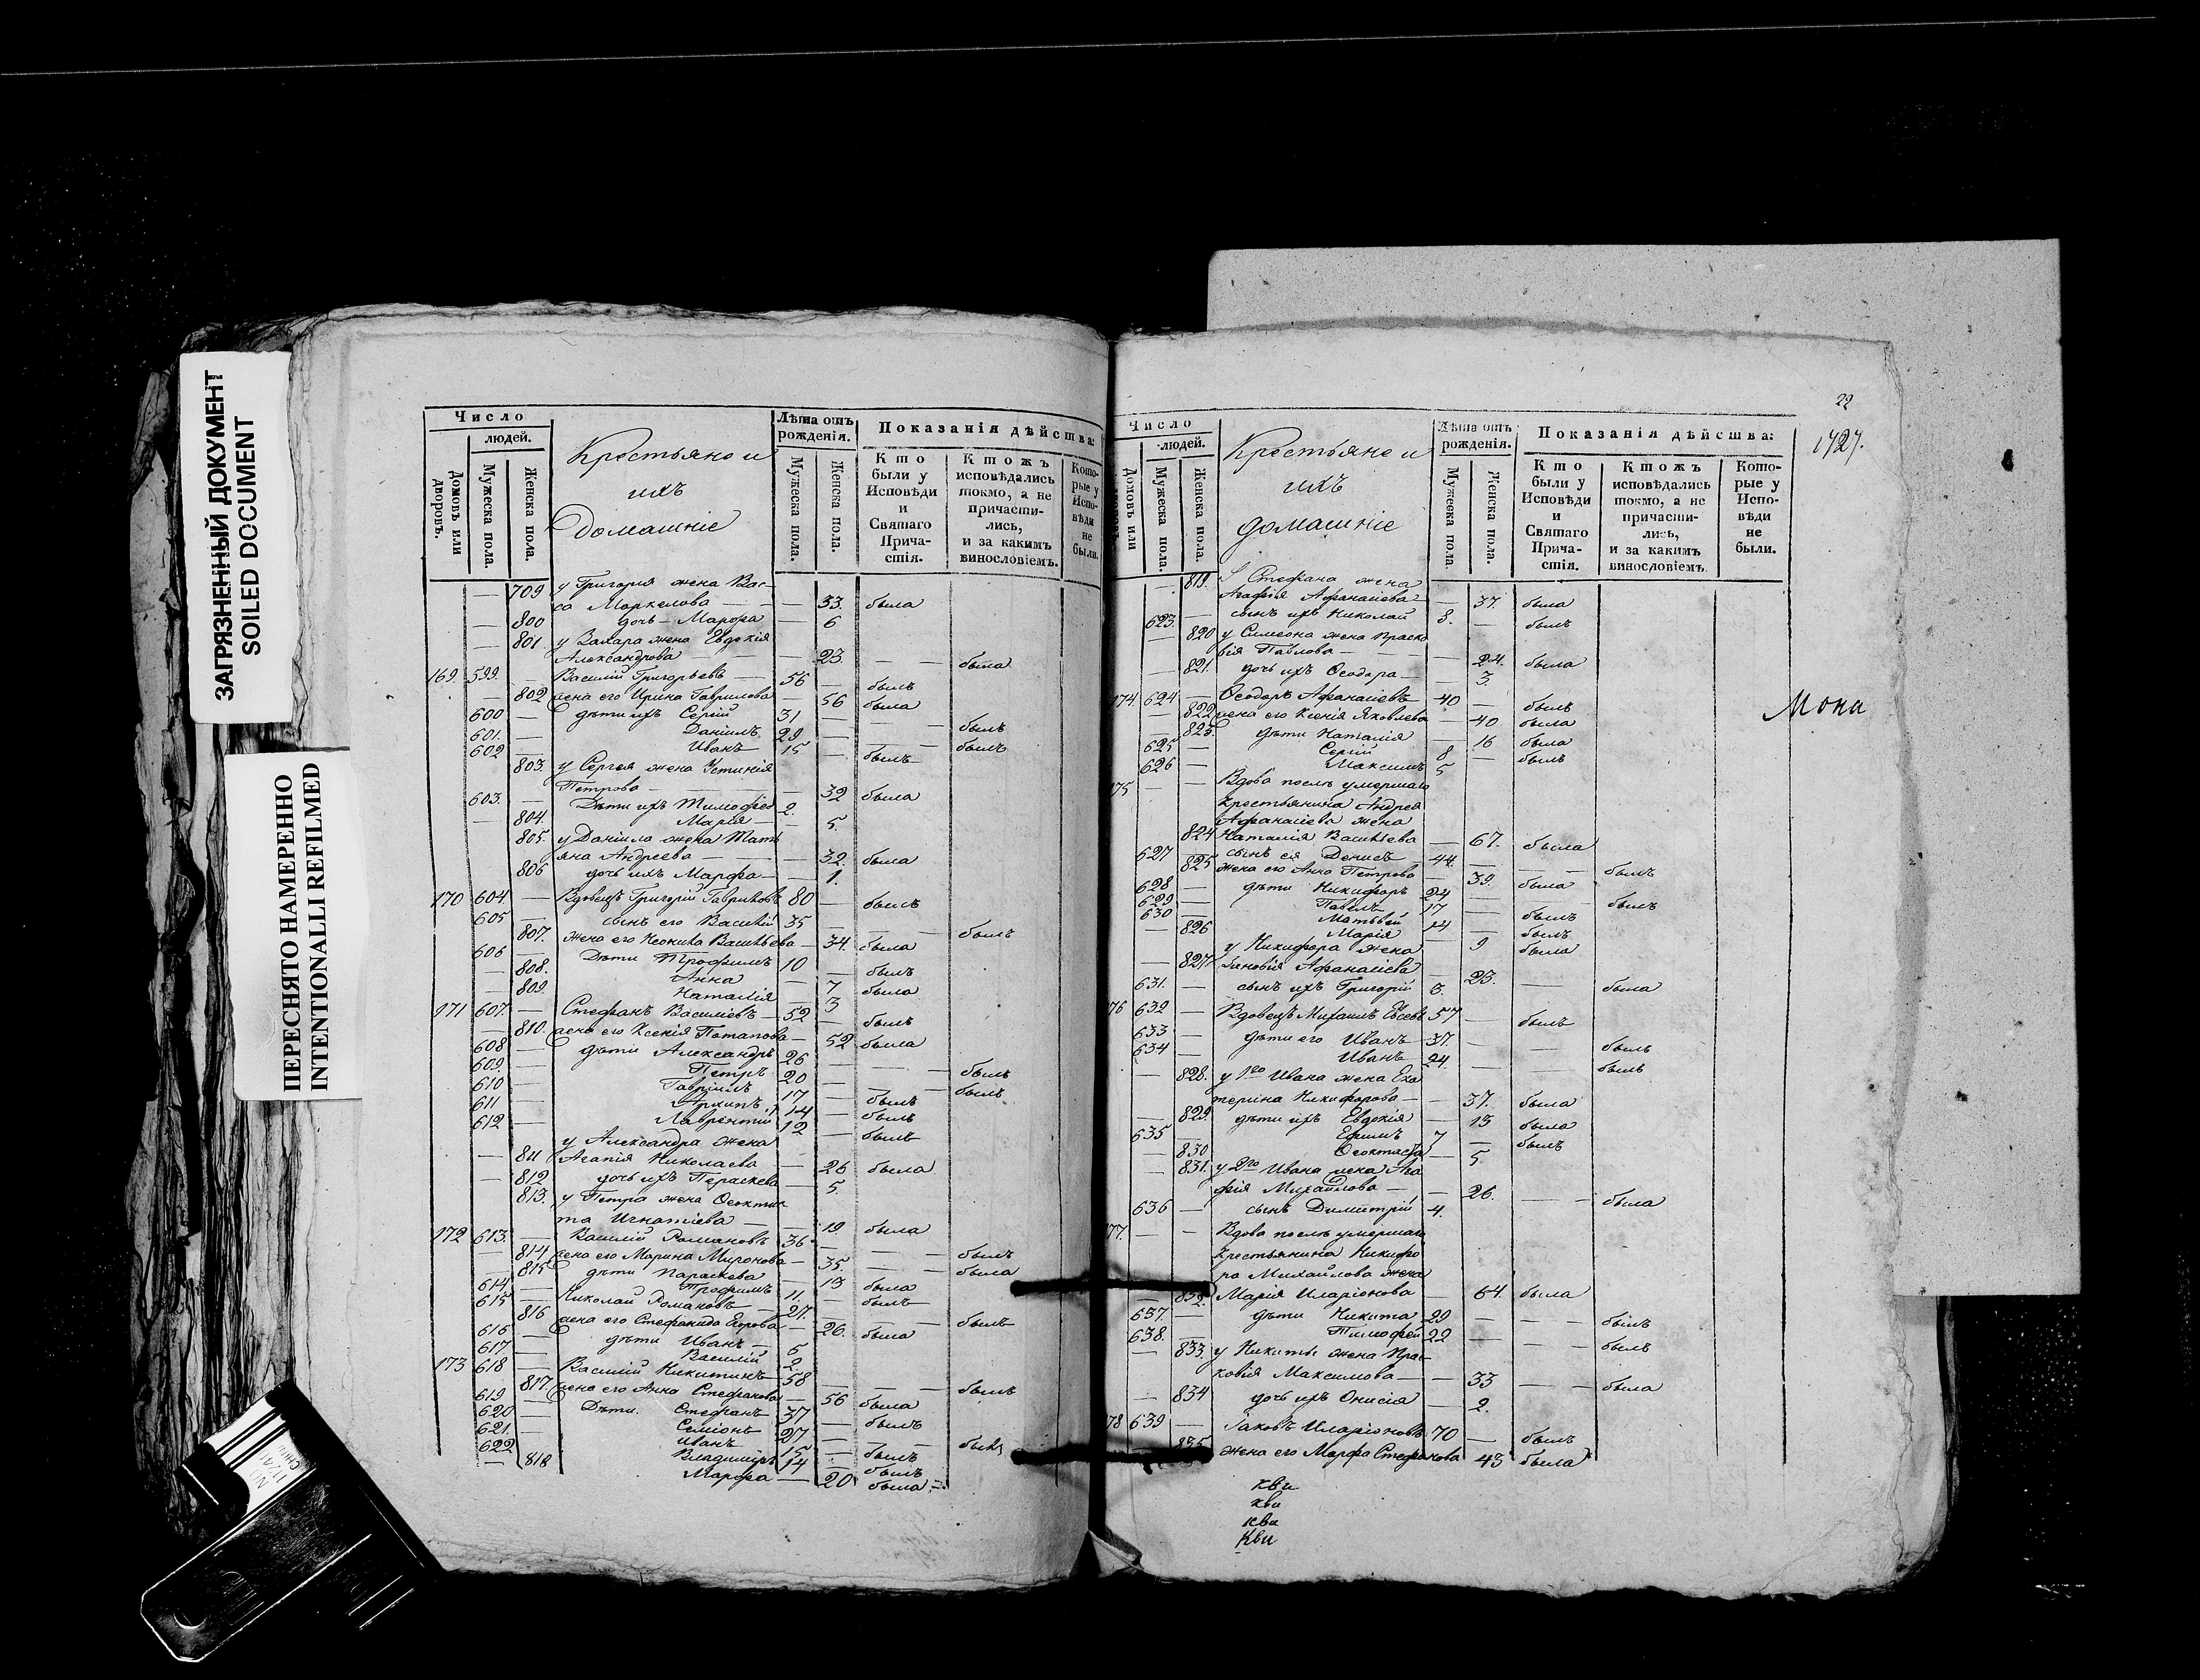 ЗАГРЯЗНЕННЫЙ ДОКУМЕНТ
SOILED DOCUMENT
ПЕРЕСНЯТО НАМЕРЕННО
INTENTIONALLI REFILMED
Число
людей.
Домовъ или дворовъ.
Мужеска пола.
Женска пола.
Крестьяне и
ихъ
Домашніе
Лѣта отъ
рожденія.
Мужеска пола.
Женска пола.
Показанія дѣйства:
Кто были у Исповѣди и Святаго Причастія.
Ктожъ исповѣдались токмо, а не причастились, и за какимъ винословіемъ.
Которые у Исповѣди не были.
709 у Григорія жена Вас-
са Маркелова — 33. была
800 дочь — Марфа — 6
801. у Захара жена Евдокія
Александрова — 23. — была
169. 599. — Василій Григорьевъ — 56 — былъ
802 жена его Ирина Гаврилова 56 была
600 — дѣти ихъ Сергій 31 — былъ
601. — Даніилъ 29 — былъ
602 — Иванъ 15 — былъ
803. у Сергея жена Устинія
Петрова — 32 была
603. — Дѣти ихъ Тимофей 2.
804. Марія — 5.
805. у Даніила жена Тать
яна Андреева — 32. была
806 дочь ихъ Марфа — 1.
170 604 — Вдовецъ Григорій Гавриловъ 80 — былъ
605 — сынъ его Василій 35 — былъ
807. жена его Неонила Васильева — 34. была
606 — Дѣти Трофимъ 10 — былъ
808. Анна — 7 была
809. Наталія — 3
171 607. — Стефанъ Василіевъ — 52 — былъ
810. жена его Ксенія Потапова — 52 была
608 — дѣти Александръ 26 — былъ
609. — Петръ 20 — былъ
610 — Гавріилъ 17 — былъ
611 — Архипъ 14 — былъ
612 — Лаврентій 12 — былъ
у Александра жена
811 Агапія Николаева — 26 была
812 дочь ихъ Параскева — 5.
813. у Петра жена Феокти
та Игнатіева — 19. была
172 613. — Василій Романовъ 36 — былъ
814 жена его Марина Миронова — 35. — была
815 дѣти Параскева — 13 была
614 — Трофимъ 11. — былъ
615 — Николай Романовъ — 27. — былъ
816 жена его Стефанида — 26. была
616 — дѣти Иванъ — 5
617 — Василій 2.
173 618 — Василій Никитинъ 58 — былъ
817. жена его Анна Стефанова — 56 была
619 — Дѣти. Стефанъ 37 — былъ
620 — Семіонъ 27 — былъ
621. — Иванъ 15 — былъ
622 — Владиміръ 14 — былъ
818 Марфа — 20 была
22
1727.
Число
людей.
Домовъ или
Мужеска пола.
Женска пола.
Крестьяне и
ихъ
домашніе
Лѣта отъ
рожденія.
Мужеска пола.
Женска пола.
Показанія дѣйства:
Кто были у Исповѣди и Святаго Причастія.
Ктожъ исповѣдались токмо, а не причастились, и за какимъ винословіемъ.
Которые у Исповѣди не были.
819. У Стефана жена
Агафія Афанасіева — 37. была
623. — сынъ ихъ Николай 8. — былъ
820 у Симеона жена Праско
вія Павлова — 24. была
821. дочь ихъ Феодора — 3.
174. 624 — Феодоръ Афанасіевъ — 40 — былъ
822 жена его Ксенія Яковлева — 40 была
823. дѣти Наталія — 16 была
625 — Сергій 8 — былъ
626 — Максимъ 5
Мона
75 — Вдова послѣ умершаго
крестьянина Андрея
Афанасіева жена
824 Наталія Васильева — 67. была
627 сынъ ея Денисъ — 44. — былъ
825 жена его Анна Петрова — 39. была
628 — дѣти Никифоръ 24 — былъ
629 — Павелъ 17 — былъ
630 — Матвѣй 14 — былъ
826 Марія — 9 была
у Никифора жена
827 Зиновія Афанасіева — 23. — была
631. — сынъ ихъ Григорій 3.
76 632 — Вдовецъ Михаилъ Евсеевъ 57 — былъ
633 — дѣти его Иванъ — 37. — былъ
634 — Иванъ — 24. — былъ
828. у 1го Ивана жена Ека
терина Никифорова — 37. была
829. дѣти ихъ Евдокія — 13 была
635 — Ефимъ 7 — былъ
830 Феоктиста — 5.
831. у 2го Ивана жена Ага
фія Михайлова — 26. — была
636 — сынъ Димитрій 4.
77. — Вдова послѣ умершаго
крестьянина Никифо
ра Михайлова жена
832. Марія Иларіонова — 64. была
637. дѣти Никита 29 — былъ
638. — Тимофей 22 — былъ
833. у Никиты жена Прас-
ковія Максимова — 33 — была
834 дочь ихъ Онисія — 2.
78 639 — Іаковъ Иларіоновъ 70 — былъ
835. жена его Марфа Стефанова 43 была